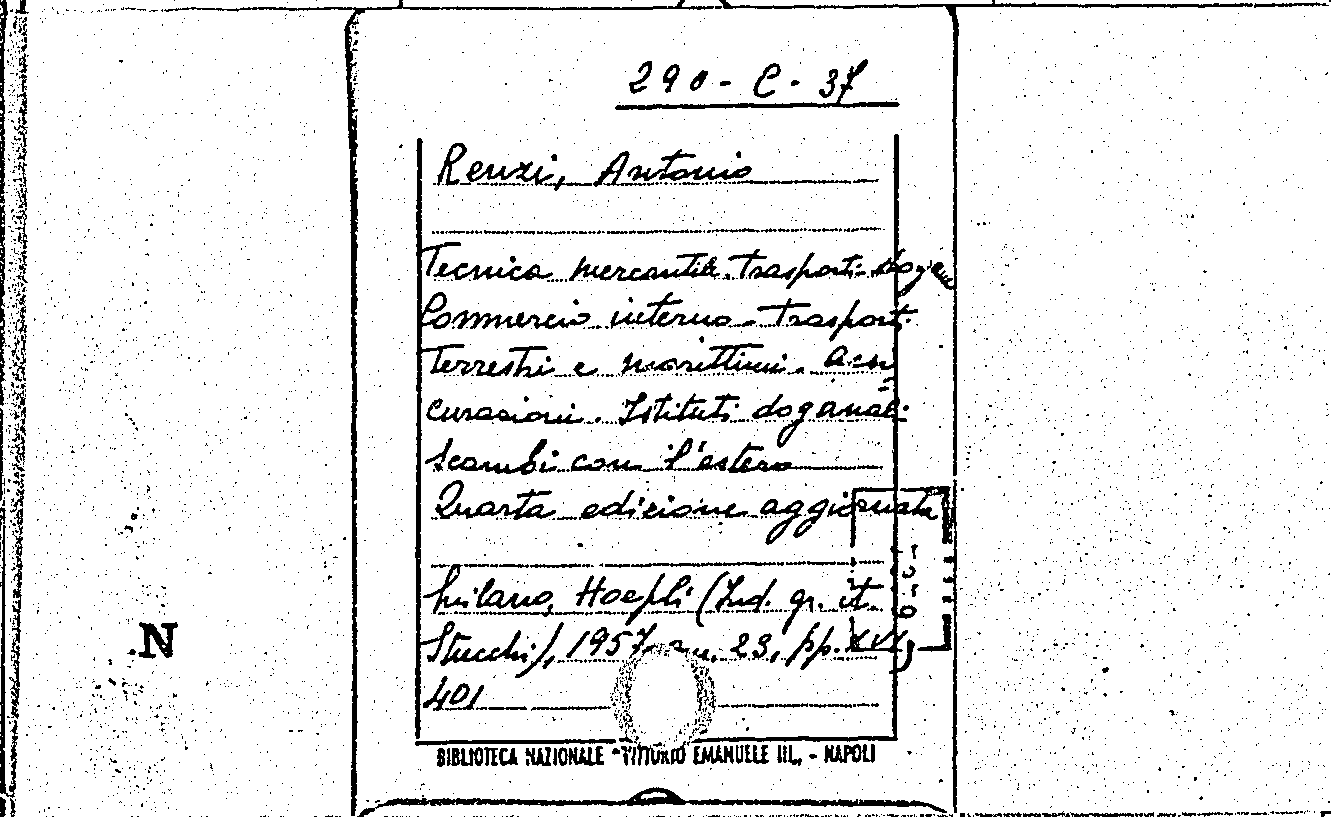 290-C-37
Renzi, Antonio
Tecnica mercantile. Trasporti-dogane
Commercio interno - Trasporti
Terrestri e marittimi. Assi=
curazioni. Istituti doganali
Scambi con l'estero
Quarta edizione aggiornata
Milano, Hoepli (Ind. gr. it.
Stucchi), 1957, 23, pp. XVI,
401
BIBLIOTECA NAZIONALE "VITTORIO EMANUELE III„ - NAPOLI
N